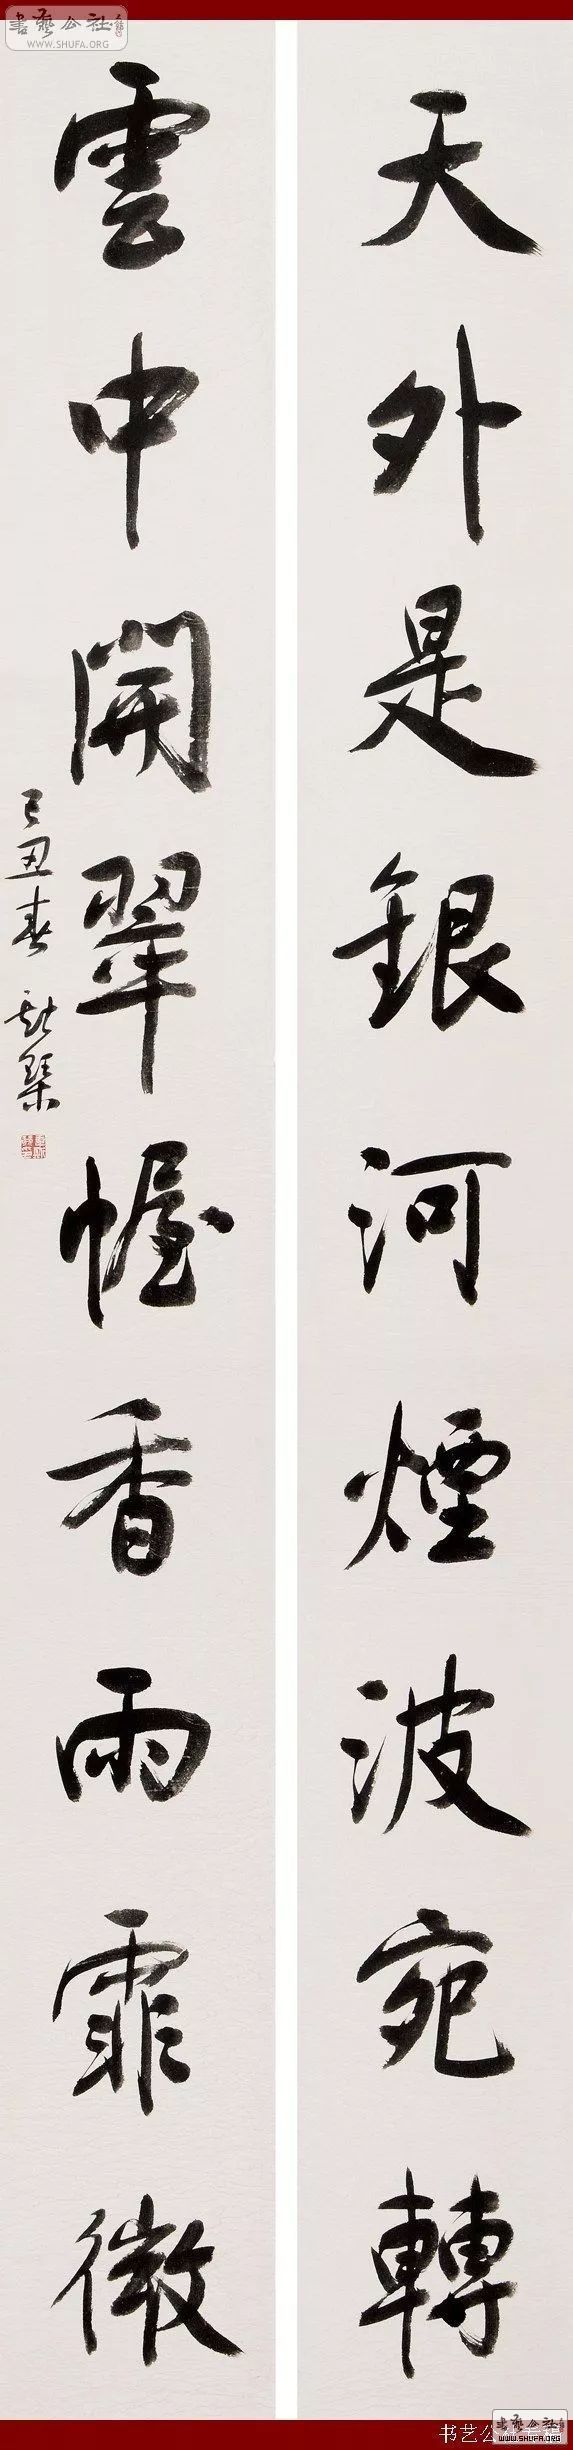 書藝公社
WWW.SHUFA.ORG
天外是銀河煙波宛轉
雲中開翠幄香雨霏微
己丑春
书艺公社专稿
書藝公社
WWW.SHUFA.ORG